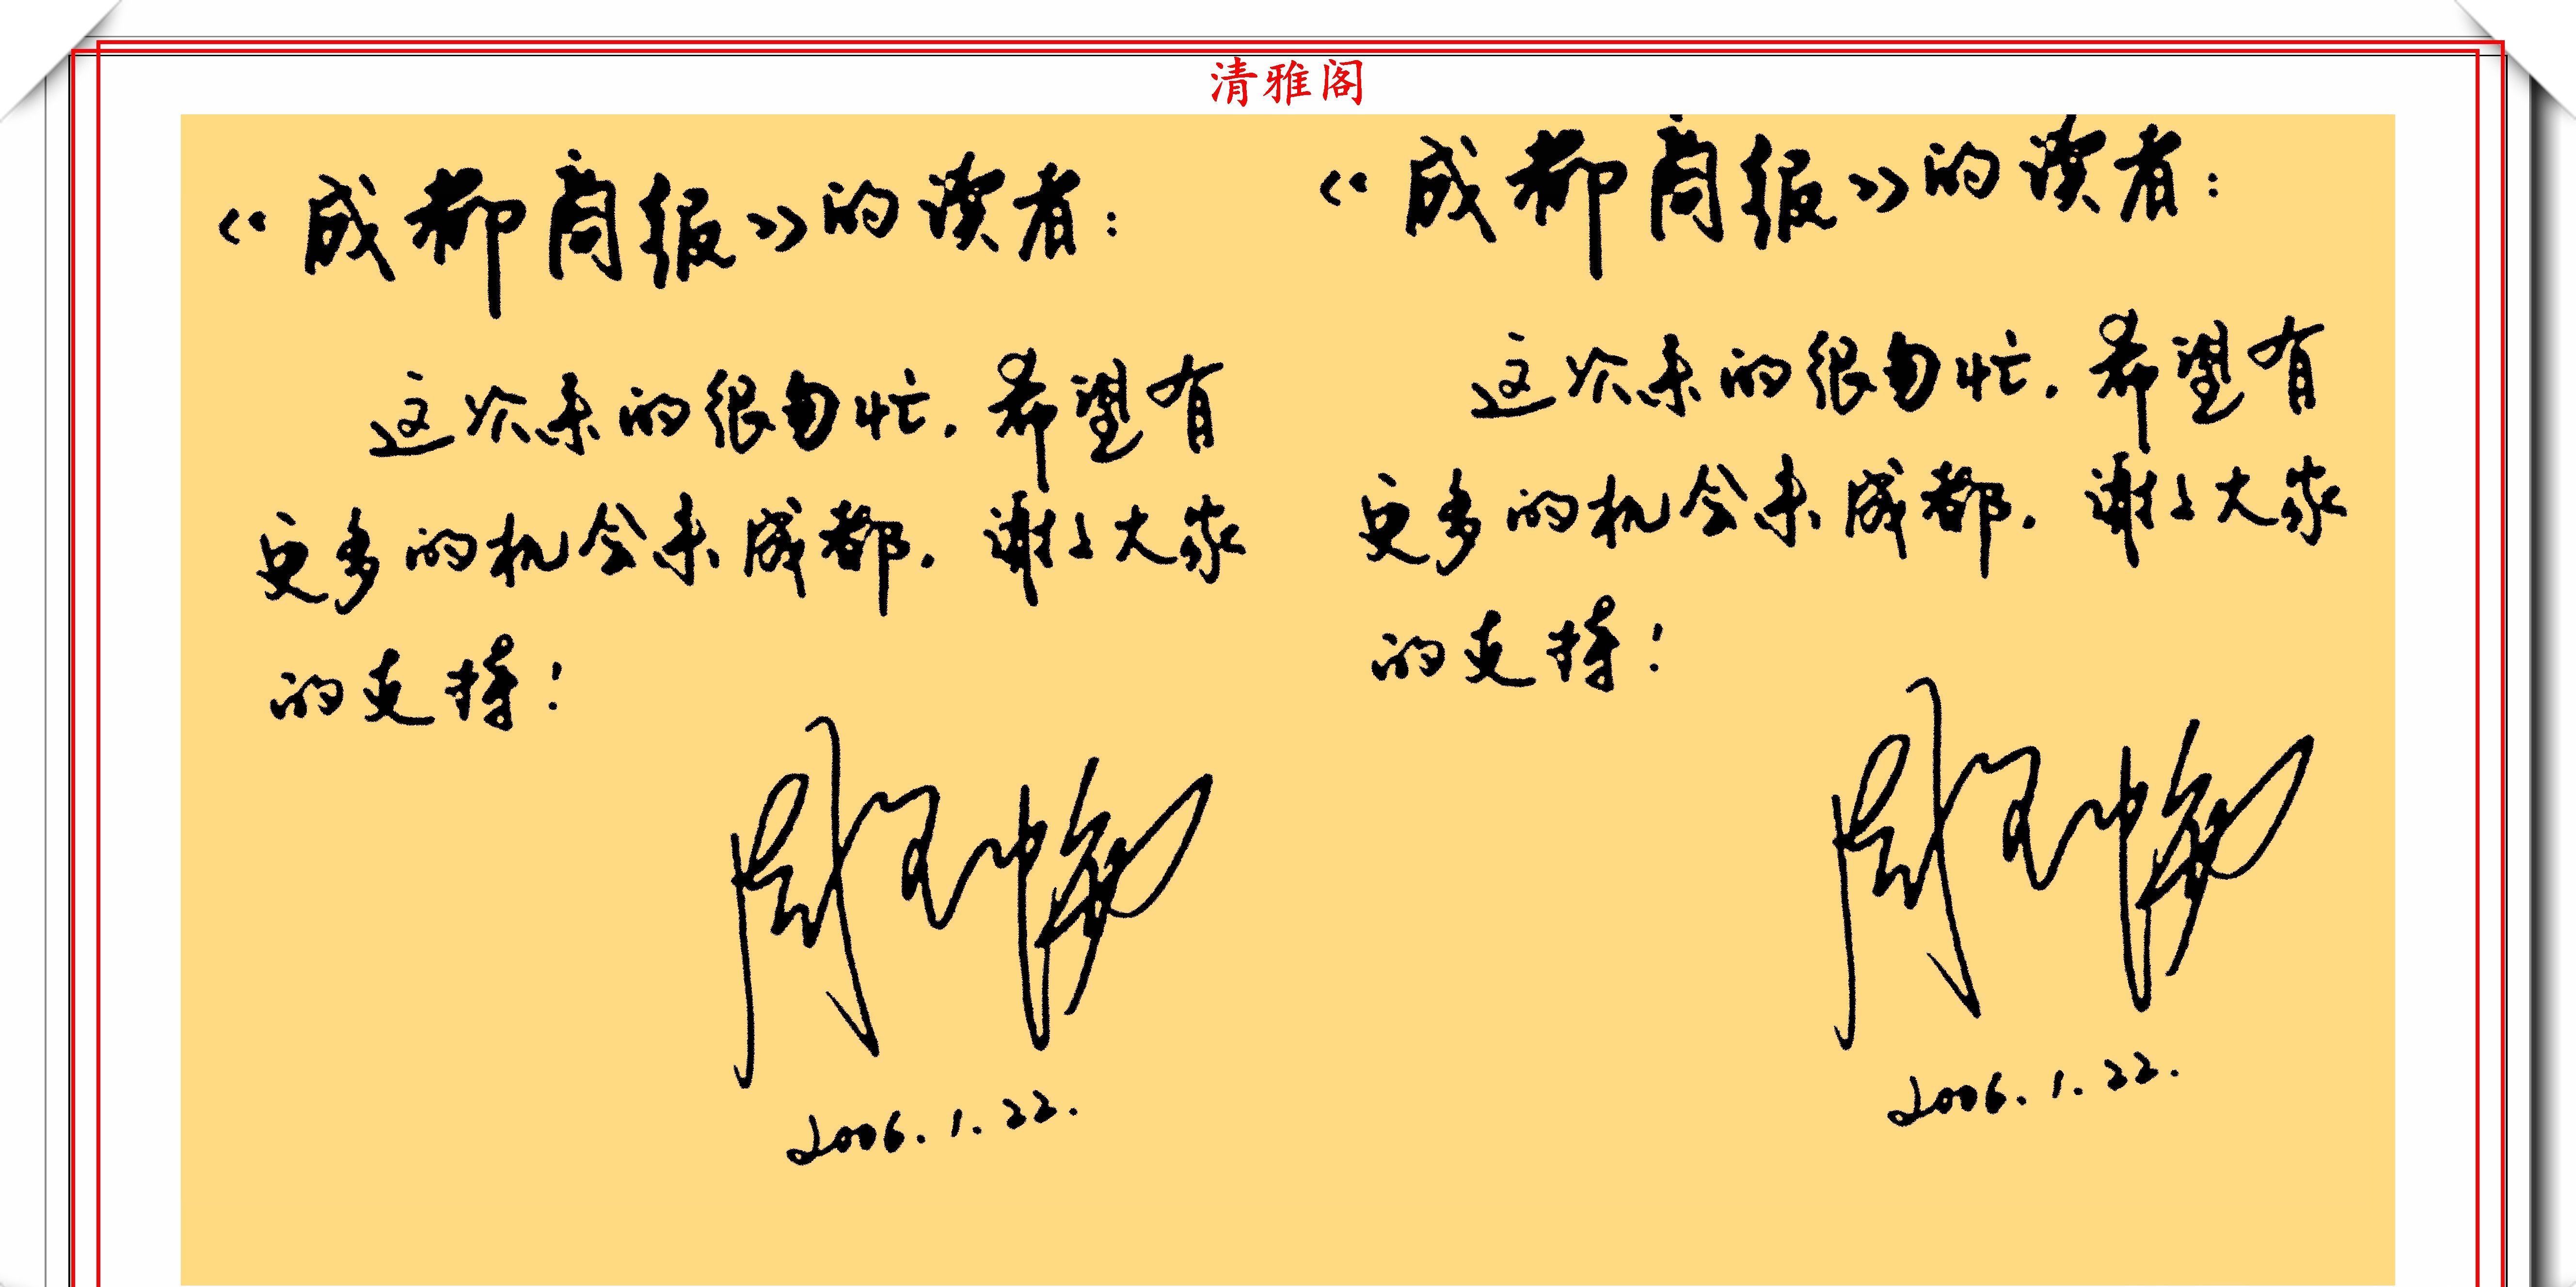 清雅阁
《成都商报》的读者:
这次来的很匆忙.希望有
更多的机会来成都.谢谢大家
的支持!
周海媚
2006.1.22.
《成都商报》的读者:
这次来的很匆忙.希望有
更多的机会来成都.谢谢大家
的支持!
周海媚
2006.1.22.